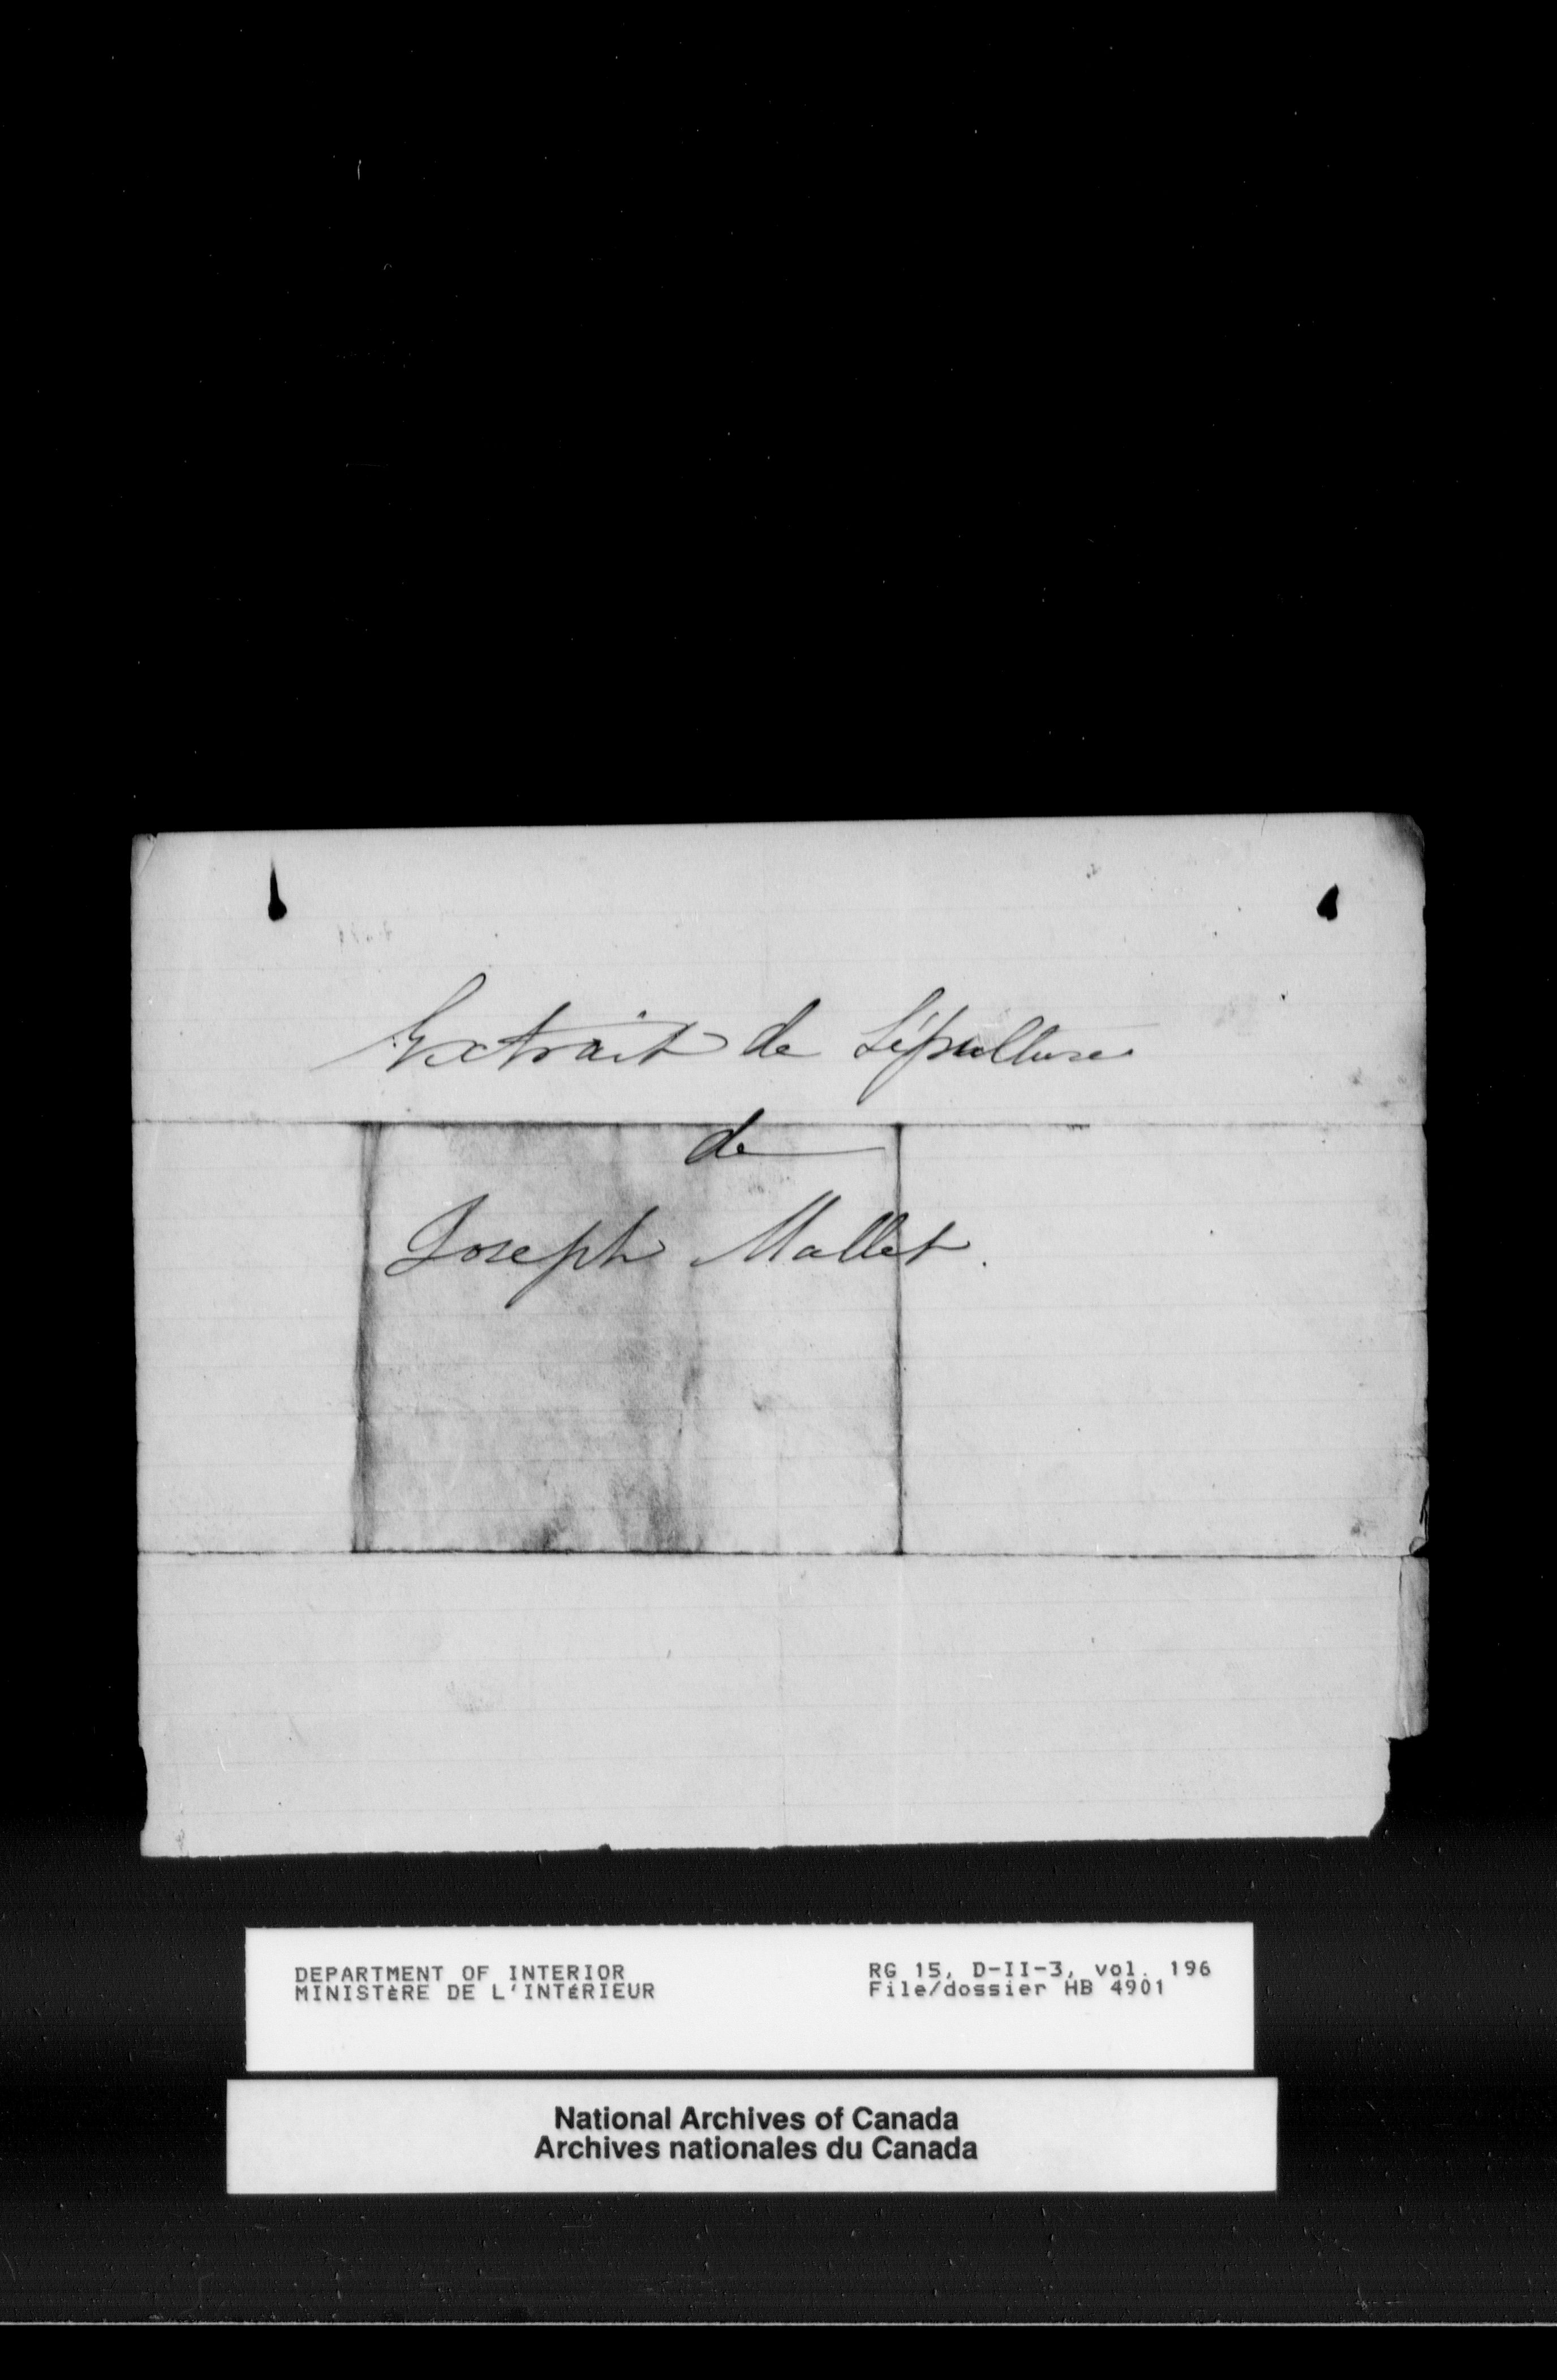 Extrait de Sépulture
de
Joseph Mallet.
DEPARTMENT OF INTERIOR
MINISTÈRE DE L'INTÉRIEUR
RG 15, D-II-3, vol. 196
File/dossier HB 4901
National Archives of Canada
Archives nationales du Canada